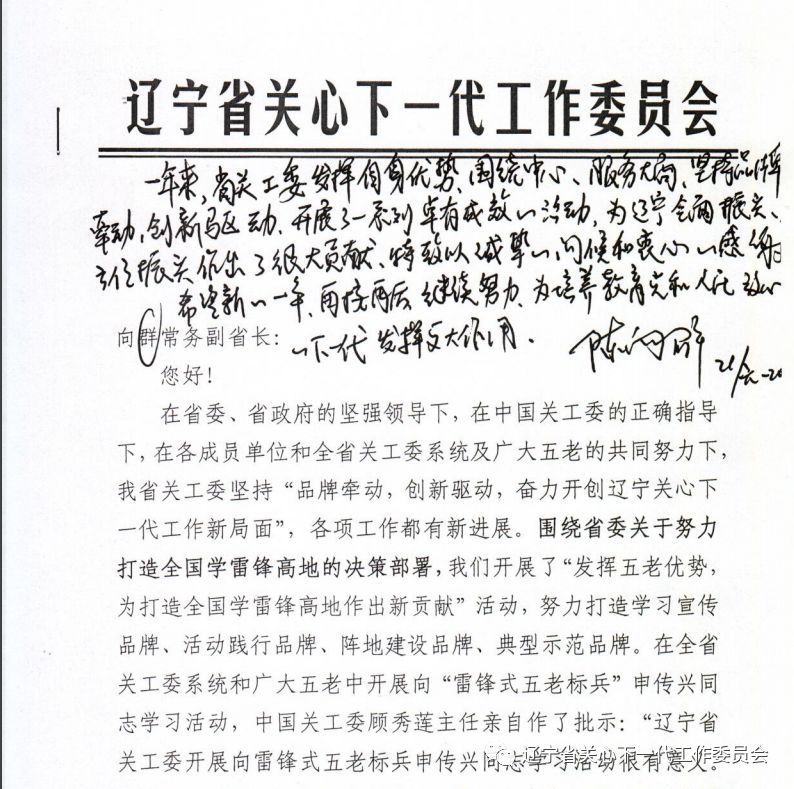 辽宁省关心下一代工作委员会
一年来,省关工委发挥自身优势、围绕中心、服务大局、坚持品牌
牵动,创新驱动,开展了一系列卓有成效的活动,为辽宁全面振兴、
全方位振兴作出了很大贡献,特致以诚挚的问候和衷心的感谢
希望新的一年,再接再厉 继续努力,为培养教育党和人民放心
的下一代发挥更大作用。 陈向群
向群常务副省长:
您好!
在省委、省政府的坚强领导下,在中国关工委的正确指导
下,在各成员单位和全省关工委系统及广大五老的共同努力下,
我省关工委坚持“品牌牵动,创新驱动,奋力开创辽宁关心下
一代工作新局面”,各项工作都有新进展。围绕省委关于努力
打造全国学雷锋高地的决策部署,我们开展了“发挥五老优势,
为打造全国学雷锋高地作出新贡献”活动,努力打造学习宣传
品牌、活动践行品牌、阵地建设品牌、典型示范品牌。在全省
关工委系统和广大五老中开展向“雷锋式五老标兵”申传兴同
志学习活动,中国关工委顾秀莲主任亲自作了批示:“辽宁省
关工委开展向雷锋式五老标兵申传兴同志学习活动很有意义。
辽宁省关心下一代工作委员会